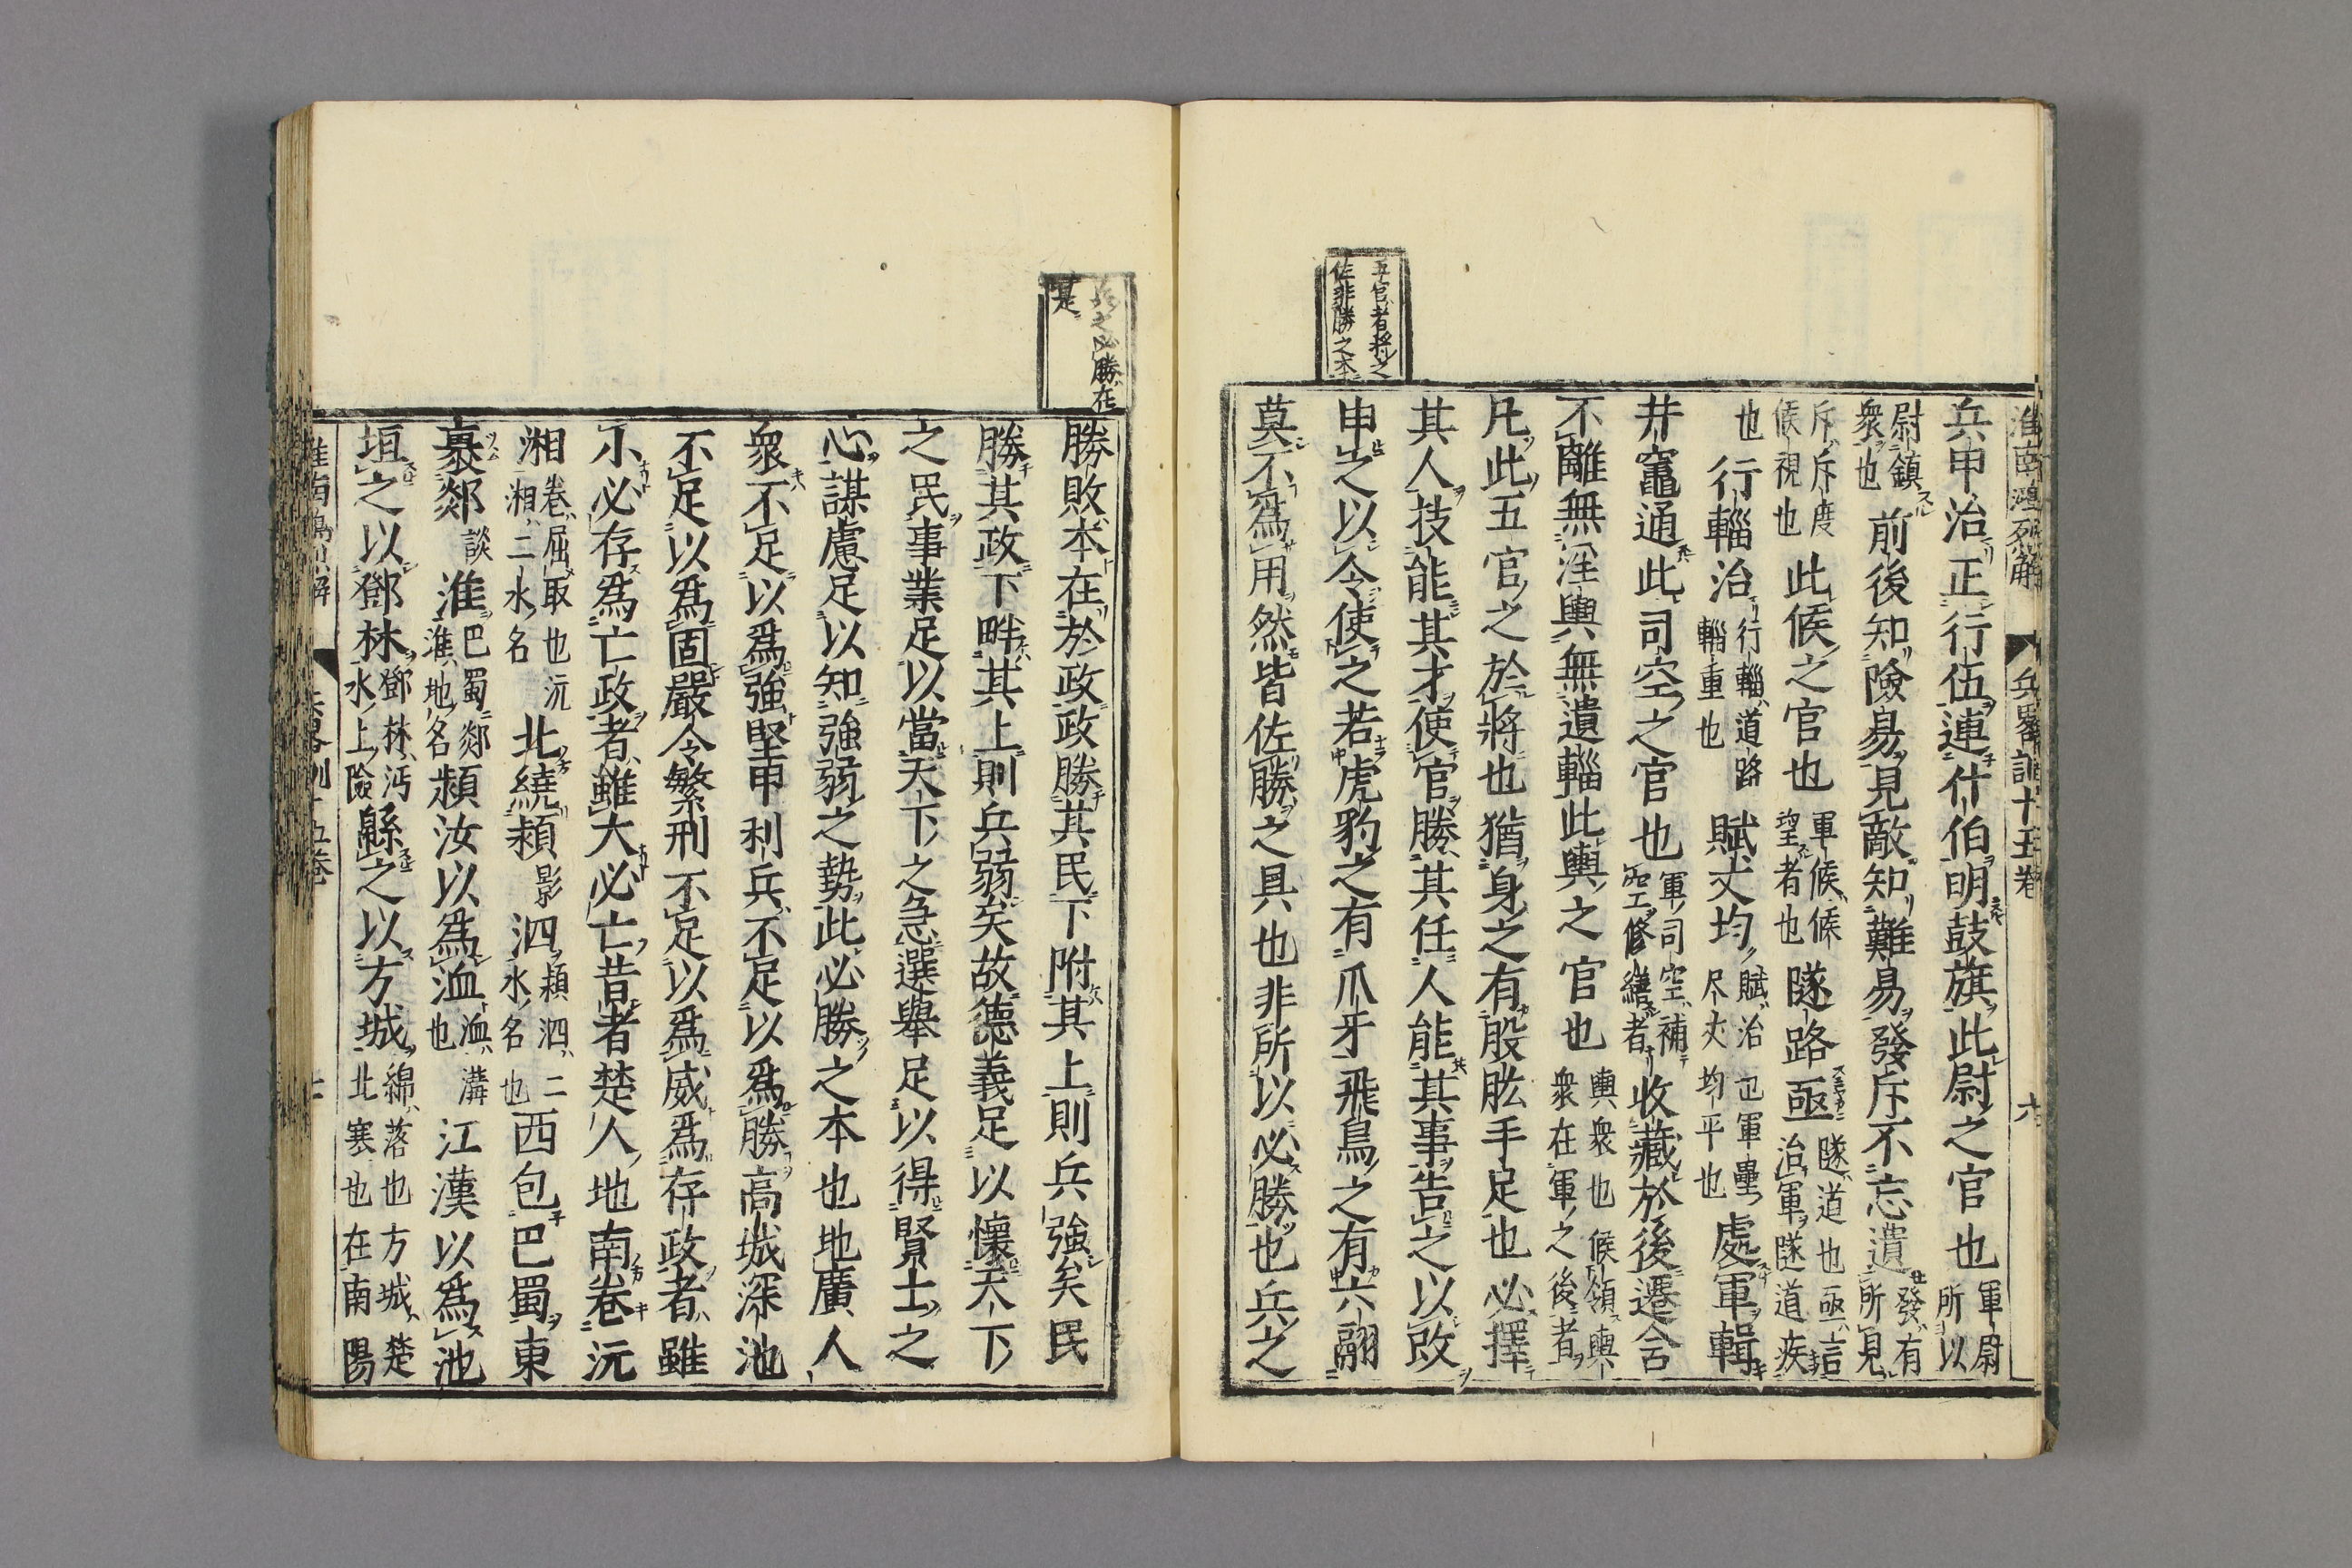 淮南鴻烈解
兵畧訓十五卷
六
五官者將之
佐非勝之本
兵甲治正行伍連什伯明鼓旗此尉之官也軍尉所以
尉鎮衆也前後知險易見敵知難易發斥不忘遺發有所見
斥斥度候視也此候之官也軍候候望者也隧路亟隧道也亟言治軍隧道疾
也行輜治行輜道路輜重也賦丈均賦治軍壘尺丈均平也處軍輯
井竈通此司空之官也軍司空補空修繕者收藏於後遷舍
不離無淫輿無遺輜此輿之官也輿衆也候領輿衆在軍之後者
凡此五官之於將也猶身之有股肱手足也必擇
其人技能其才使官勝其任人能其事告之以政
申之以令使之若虎豹之有爪牙飛鳥之有六翮
莫不爲用然皆佐勝之具也非所以必勝也兵之
之必勝在
是
勝敗本在於政政勝其民下附其上則兵強矣民
勝其政下畔其上則兵弱矣故德義足以懷天下
之民事業足以當天下之急選舉足以得賢士之
心謀慮足以知強弱之勢此必勝之本也地廣人
衆不足以爲強堅甲利兵不足以爲勝高城深池
不足以爲固嚴令繁刑不足以爲威爲存政者雖
小必存爲亡政者雖大必亡昔者楚人地南卷沅
湘卷屈取也沅湘二水名北繞潁影泗潁泗二水名也西包巴蜀東
裹郯談淮巴蜀郯淮地名潁汝以爲洫洫溝也江漢以爲池
垣之以鄧林鄧林沔水上險緜之以方城綿落也方城楚北塞也在南陽
淮南鴻烈解
兵畧訓十五卷
七